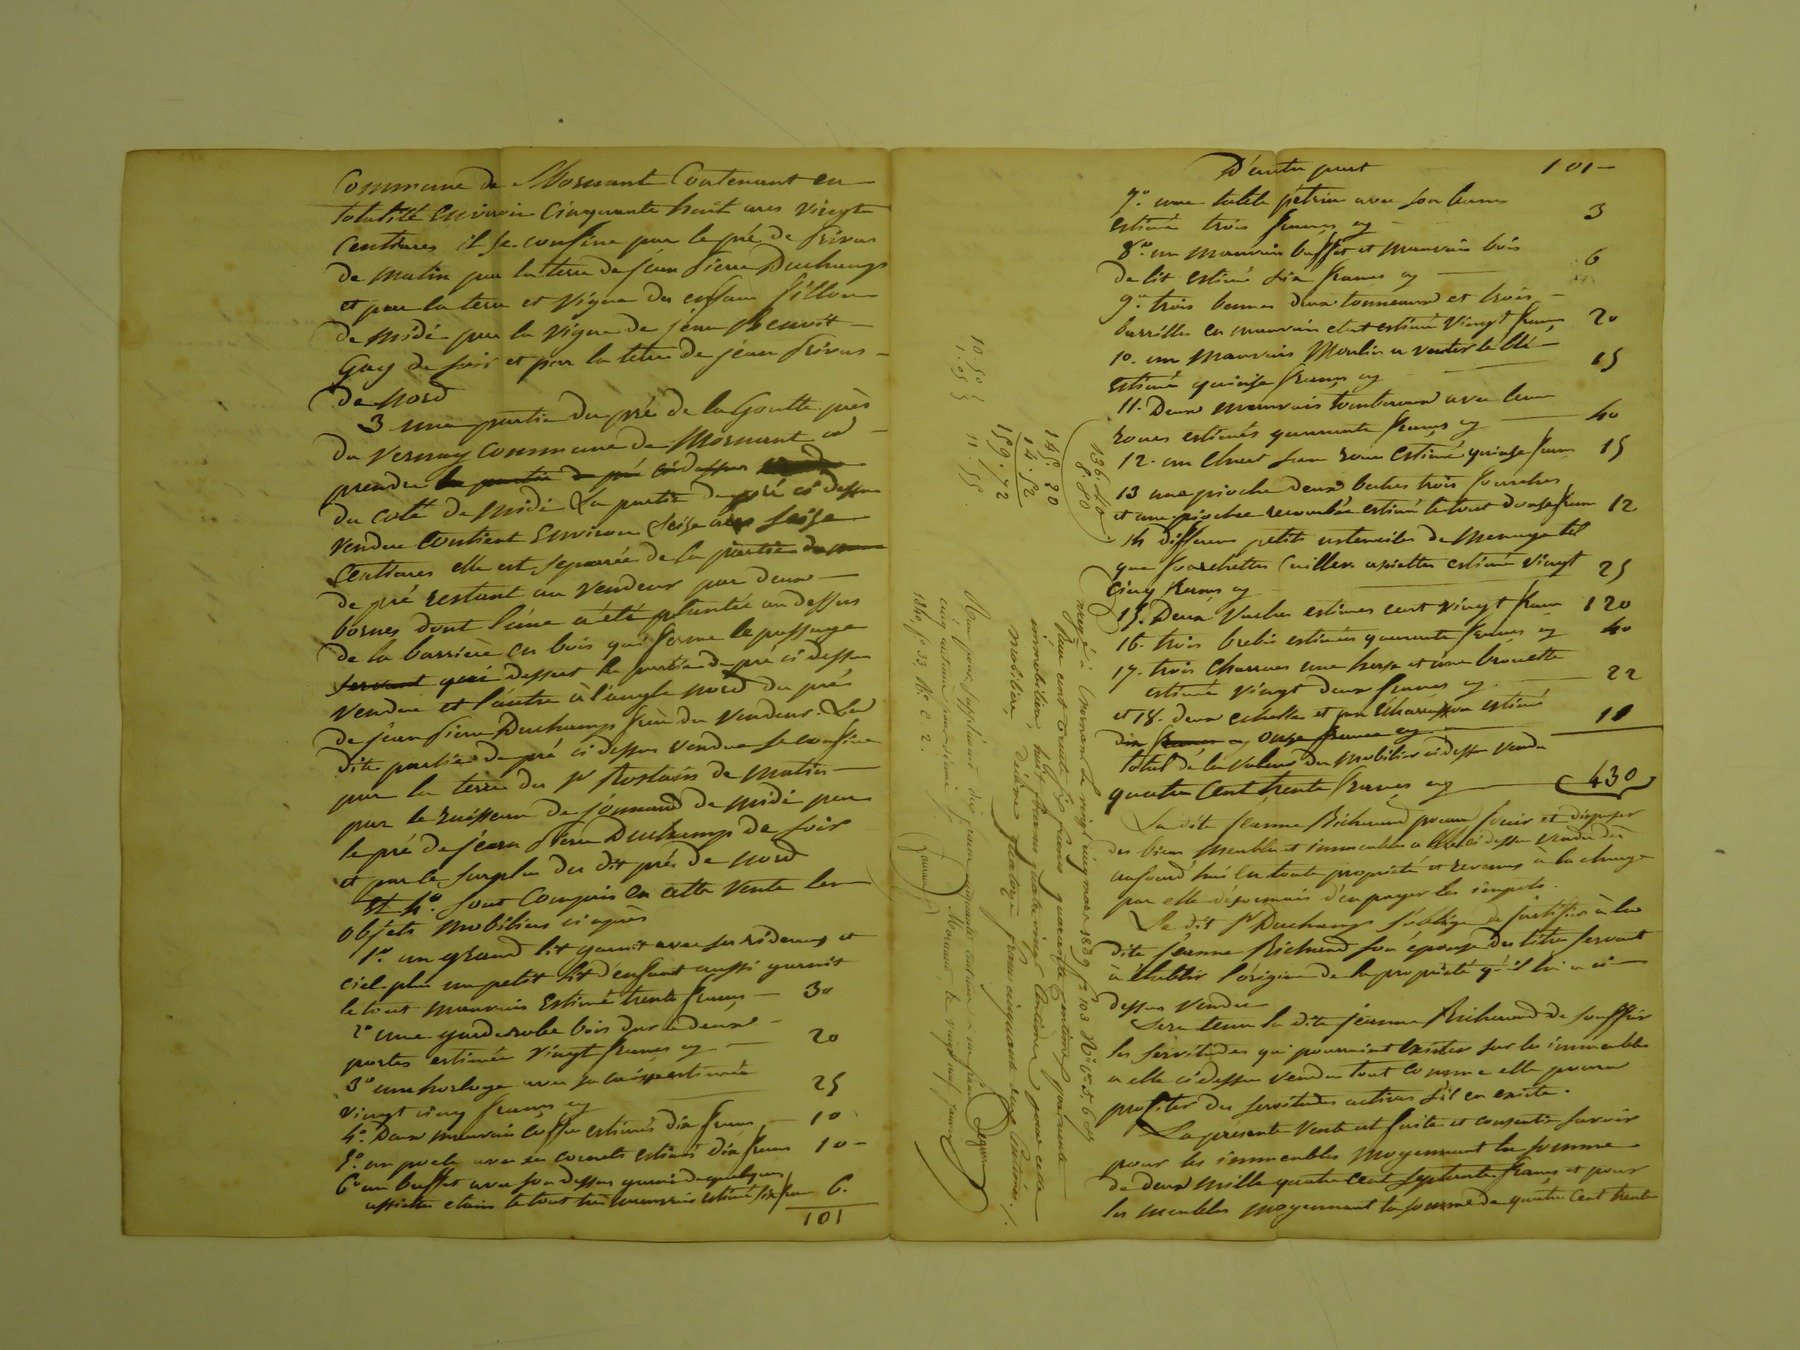 Commune de Mornant Contenant en
totalité Environ Cinquante huit ares vingt
Centiares il se confine par le pré de Privas
de matin par la terre de jean Pierre Duchamps
et par la terre et vigne des enfans fillon
de midi par la vigne de jean Benoit
Guy de soir et par la terre de jean Privas
de Nord
3 une partie du pré de la Goutte près
du Vernay Commune de Mornant a
prendre la partie de pré ci dessus
du coté de midi La partie de pré ci dessus
vendue Contient Environ Seise ares Seise
Centiares elle est separée de la partie
de pré restant au vendeur par deux
bornes dont l'une a été plantée au dessus
de la barrière en bois qui forme le passage
servant qui dessert la partie de pré ci dessus
vendue et l'autre à l'angle nord du pré
de jean Pierre Duchamps frère du vendeur. La
dite partie de pré ci dessus vendue se confine
par la terre du Sr de matin
par le ruisseau de de midi par
le pré de jean Pierre Duchamps de soir
et par le surplus du dit pré de nord
Et 4° sont Compris en cette vente les
objets mobiliers ci après
1° un grand lit garnit avec ses rideaux et
ciel plus un petit lit d'enfant aussi garnit
le tout mauvais Estimé trente francs — 30
2° une garderobe bois dur a deux
portes estimée vingt francs cy — 20
3° une horloge avec sa caisse estimée
vingt cinq francs cy 25
4° Deux mauvais coffres estimés dix francs 10
5° un poele avec ses cornets estimé dix francs 10 -
6° un buffet avec son dessus garni de quelques
assiettes etain le tout très mauvais estimé six francs 6.
101
D'autre part 101 -
7° une table pétrin avec son
estimé trois francs cy 3
8° un mauvais buffet et mauvais bois
de lit estimé six francs cy 6
9° trois bennes deux tonneaux et trois
barrilles en mauvais etat estimé vingt francs 20
10. un mauvais Moulin a venter le blé
estimé quinze francs cy 15
11. Deux mauvais tombereaux avec leur
roues estimés quarante francs cy 40
12. un char sans roue estimé quinze francs 15
13 une pioche deux beches trois fourches
et une pioche recourbée estimé le tout douze francs 12
14 differens petits ustensiles de menage tel
que fourchettes cuillers assiettes estimé vingt
cinq francs cy 25
15. Deux vaches estimées cent vingt francs 120
16. trois brebis estimées quarante francs cy 40
17. trois Charrues une herse et une brouette
estimé vingt deux francs cy 22
et 18. deux echelles et un estimé
dix francs cy onze francs cy 11
total de la valeur du mobilier ci dessus vendu
quatre Cent trente francs cy 430
La dite jeanne Richerand pourra jouir et disposer
des biens meubles et immeubles a elle ci dessus vendu dès
aujourd'hui en toute propriété et revenus à la charge
par elle désormais d'en payer les impots.
Le dit Sr Duchamps s'oblige de justifier à la
dite jeanne Richerand son épouse des titres servant
a établir l'origine de la propriété qu'il lui a ci
dessus vendu
Sera tenu la dite jeanne Richerand de souffrir
les servitudes qui pourraient exister sur les immeubles
a elle ci dessus vendus tout comme elle pourra
profiter des servitudes actives s'il en existe.
La présente Vente est faite et consentie savoir
pour les immeubles moyennant la somme
de deux mille quatre cent septante francs et pour
les meubles moyennant la somme de quatre cent trente
136.40
8.80
145.20
14.52
159.72
10.50
1.05
11.55
à Mornant le vingt cinq mars 1839 f° 103 R° C 5. 6
Reçu cent trente six francs quarante centimes pour vente
immobilière, huit francs quatre vingt centimes pour celle
mobilière, décime quatorze francs cinquante deux centimes
Reçu pour supplément dix francs cinquante centimes
cinq centimes pour décime Mornant le vingt neuf janvier
1840 f° 33 R° C 2.